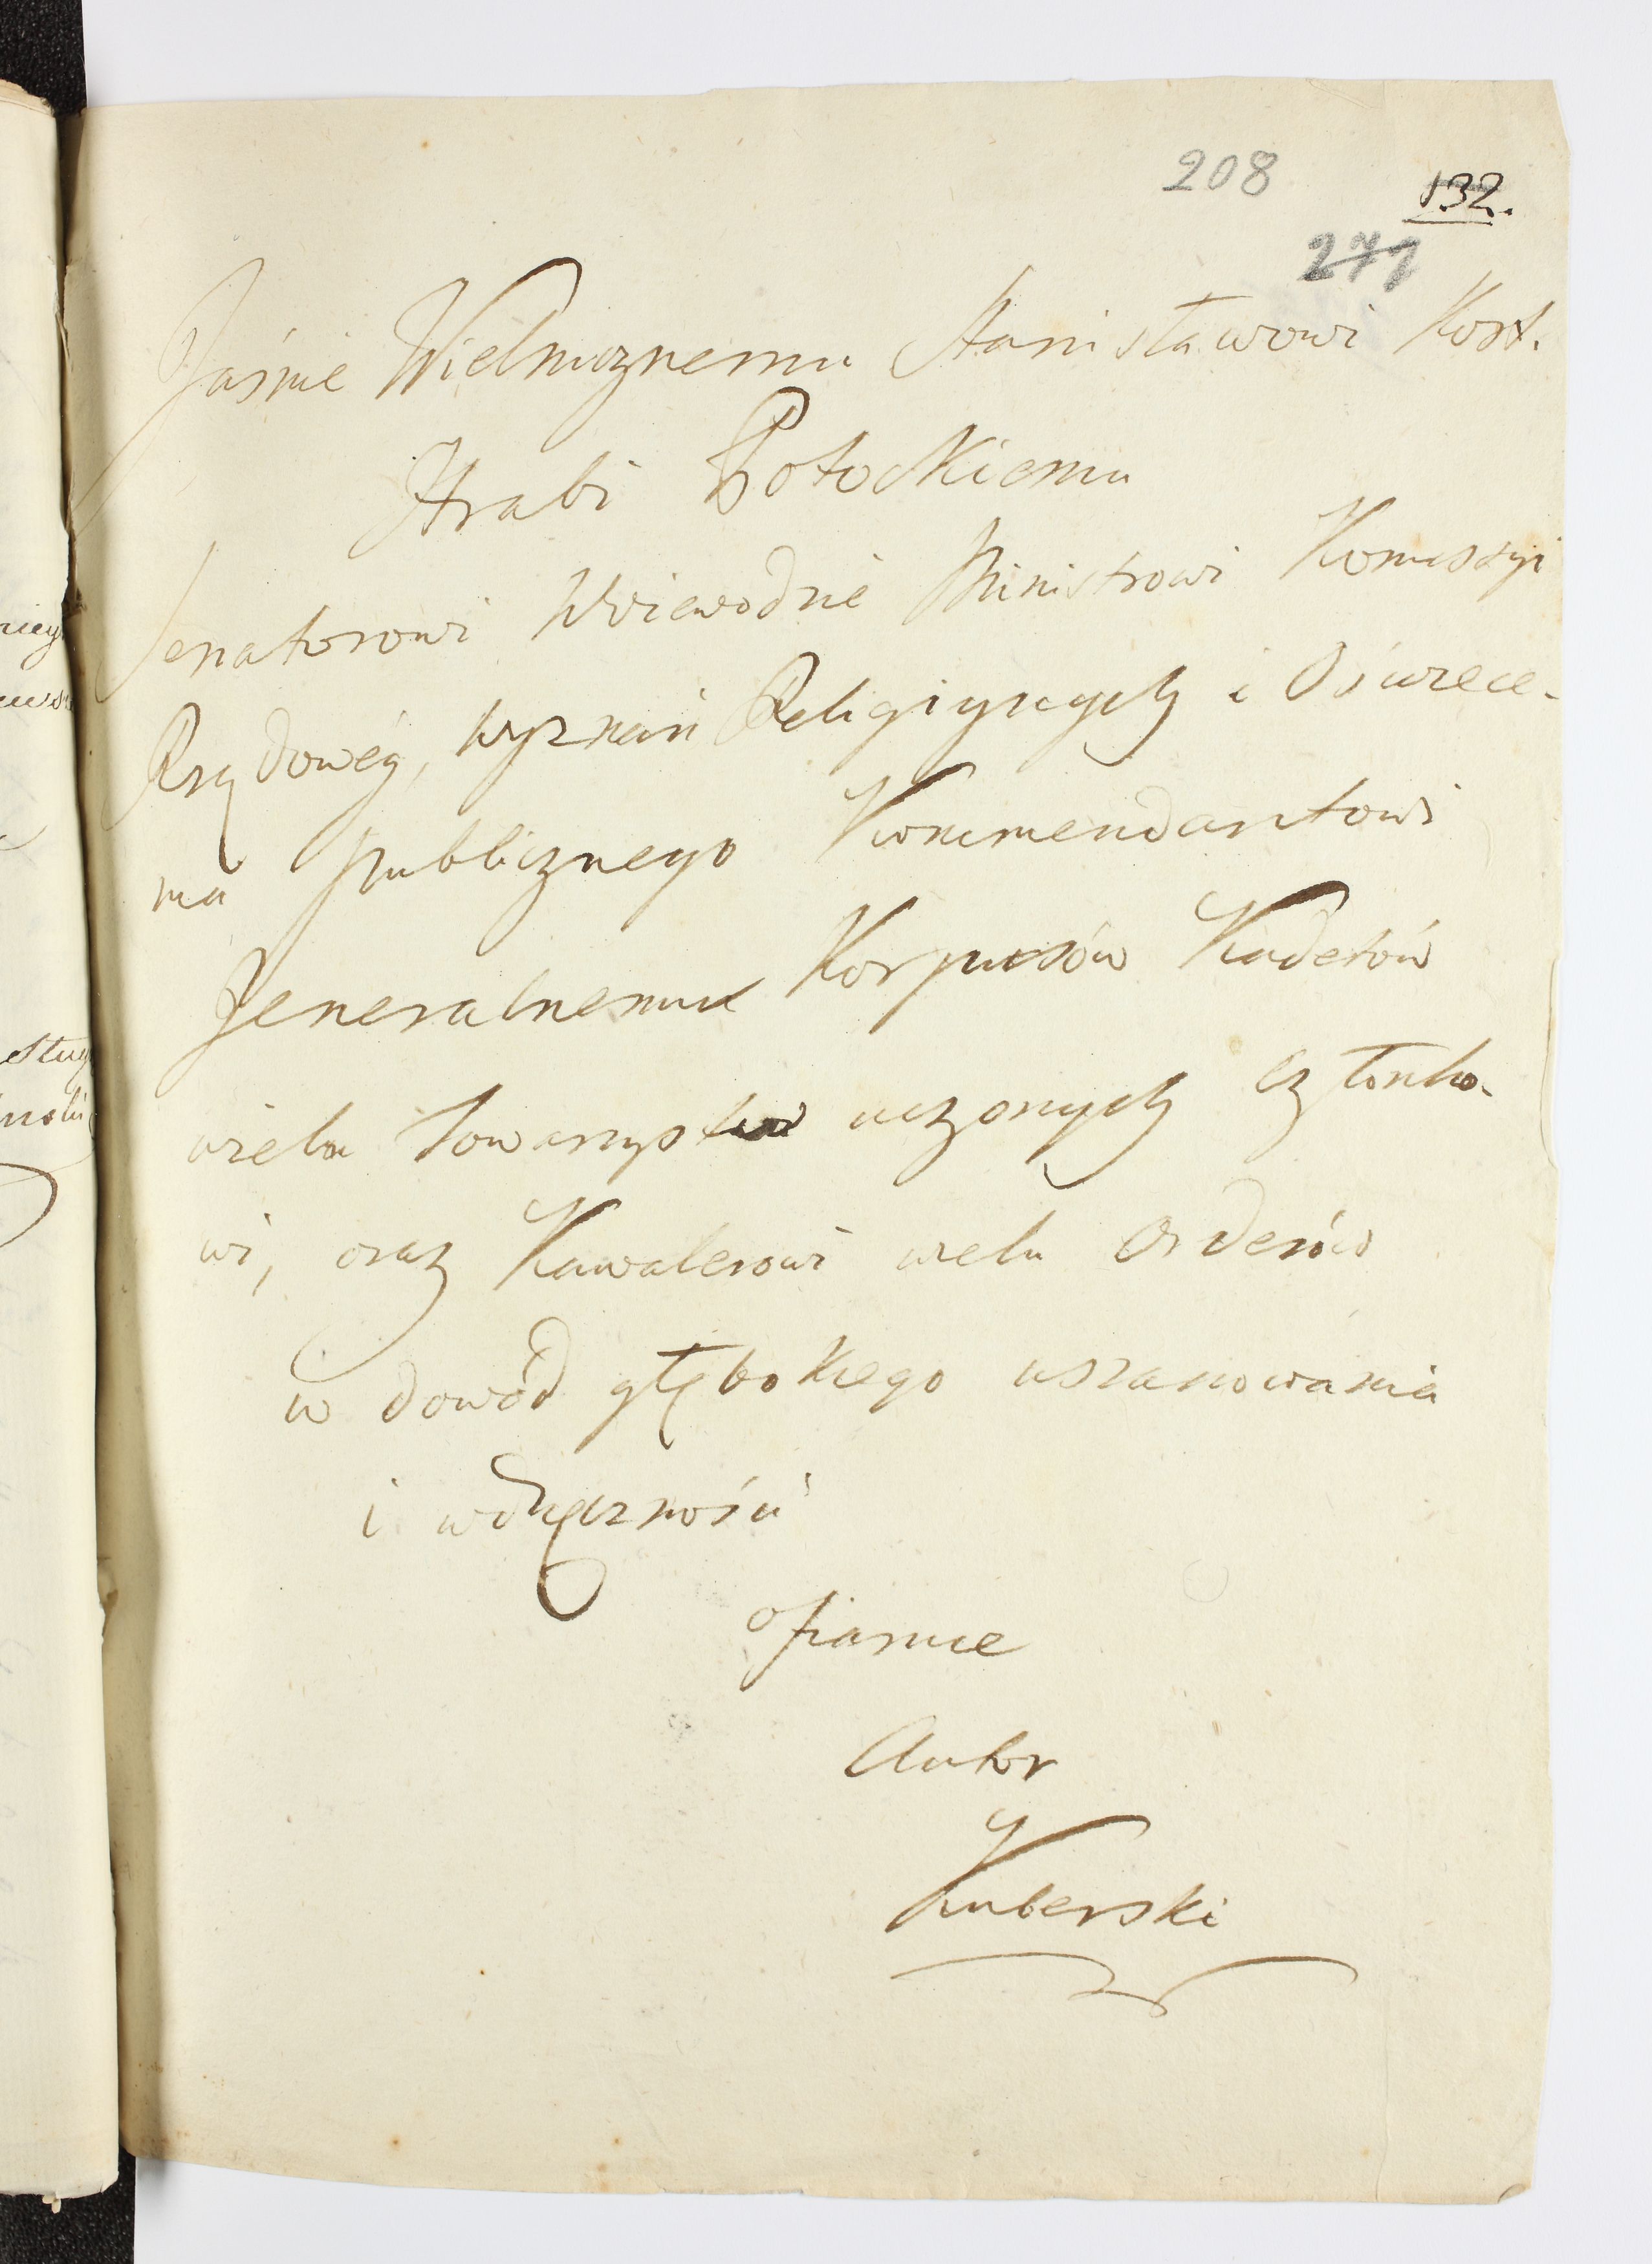 208
132.
271
Jaśnie Wielmożnemu Stanisławowi Kost.
Hrabi Potockiemu
Senatorowi Woiewodzie Ministrowi Komissyi
Rządowey, wyznań Religiynych i Oświece-
nia publicznego Kommendantowi
Jeneralnemu Korpusów Kadetów
wielu Towarzystw uczonych członko-
wi, oraz Kawalerowi wielu Orderów
w dowód głębokiego uszanowania
i wdzięczności
ofiaruie
Autor
Kuberski